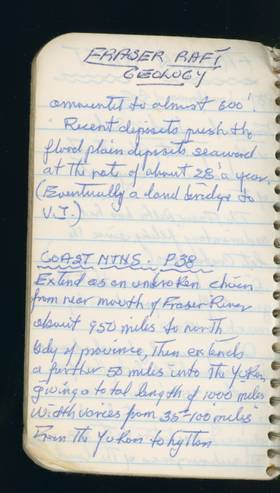 FRASER RAFT
GEOLOGY
ammounted to almost 600'.
Recent deposits push the
flood plain deposits seaward
at the rate of about 28' a year.
(Eventually a land bridge to
V.I.)
COAST MTNS. P38
Extend as an unbroken chain
from near mouth of Fraser River
about 950 miles to north
bdy of province, Then extends
a further 50 miles into the Yukon
giving a total length of 1000 miles
Width varies from 35-100 miles
From the Yukon to Lytton